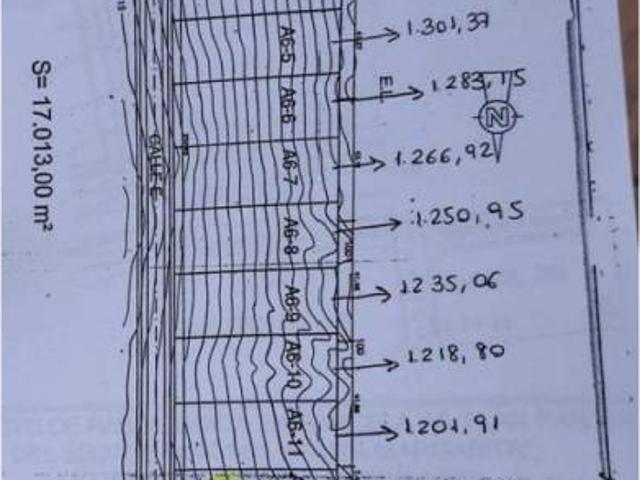 S= 17.013,00 m²
CALLE E
A6-5
A6-6
A6-7
A6-8
A6-9
A6-10
A6-11
E.L.
N
1.301,37
1.283,15
1.266,92
1.250,95
1235,06
1.218,80
1.201,91